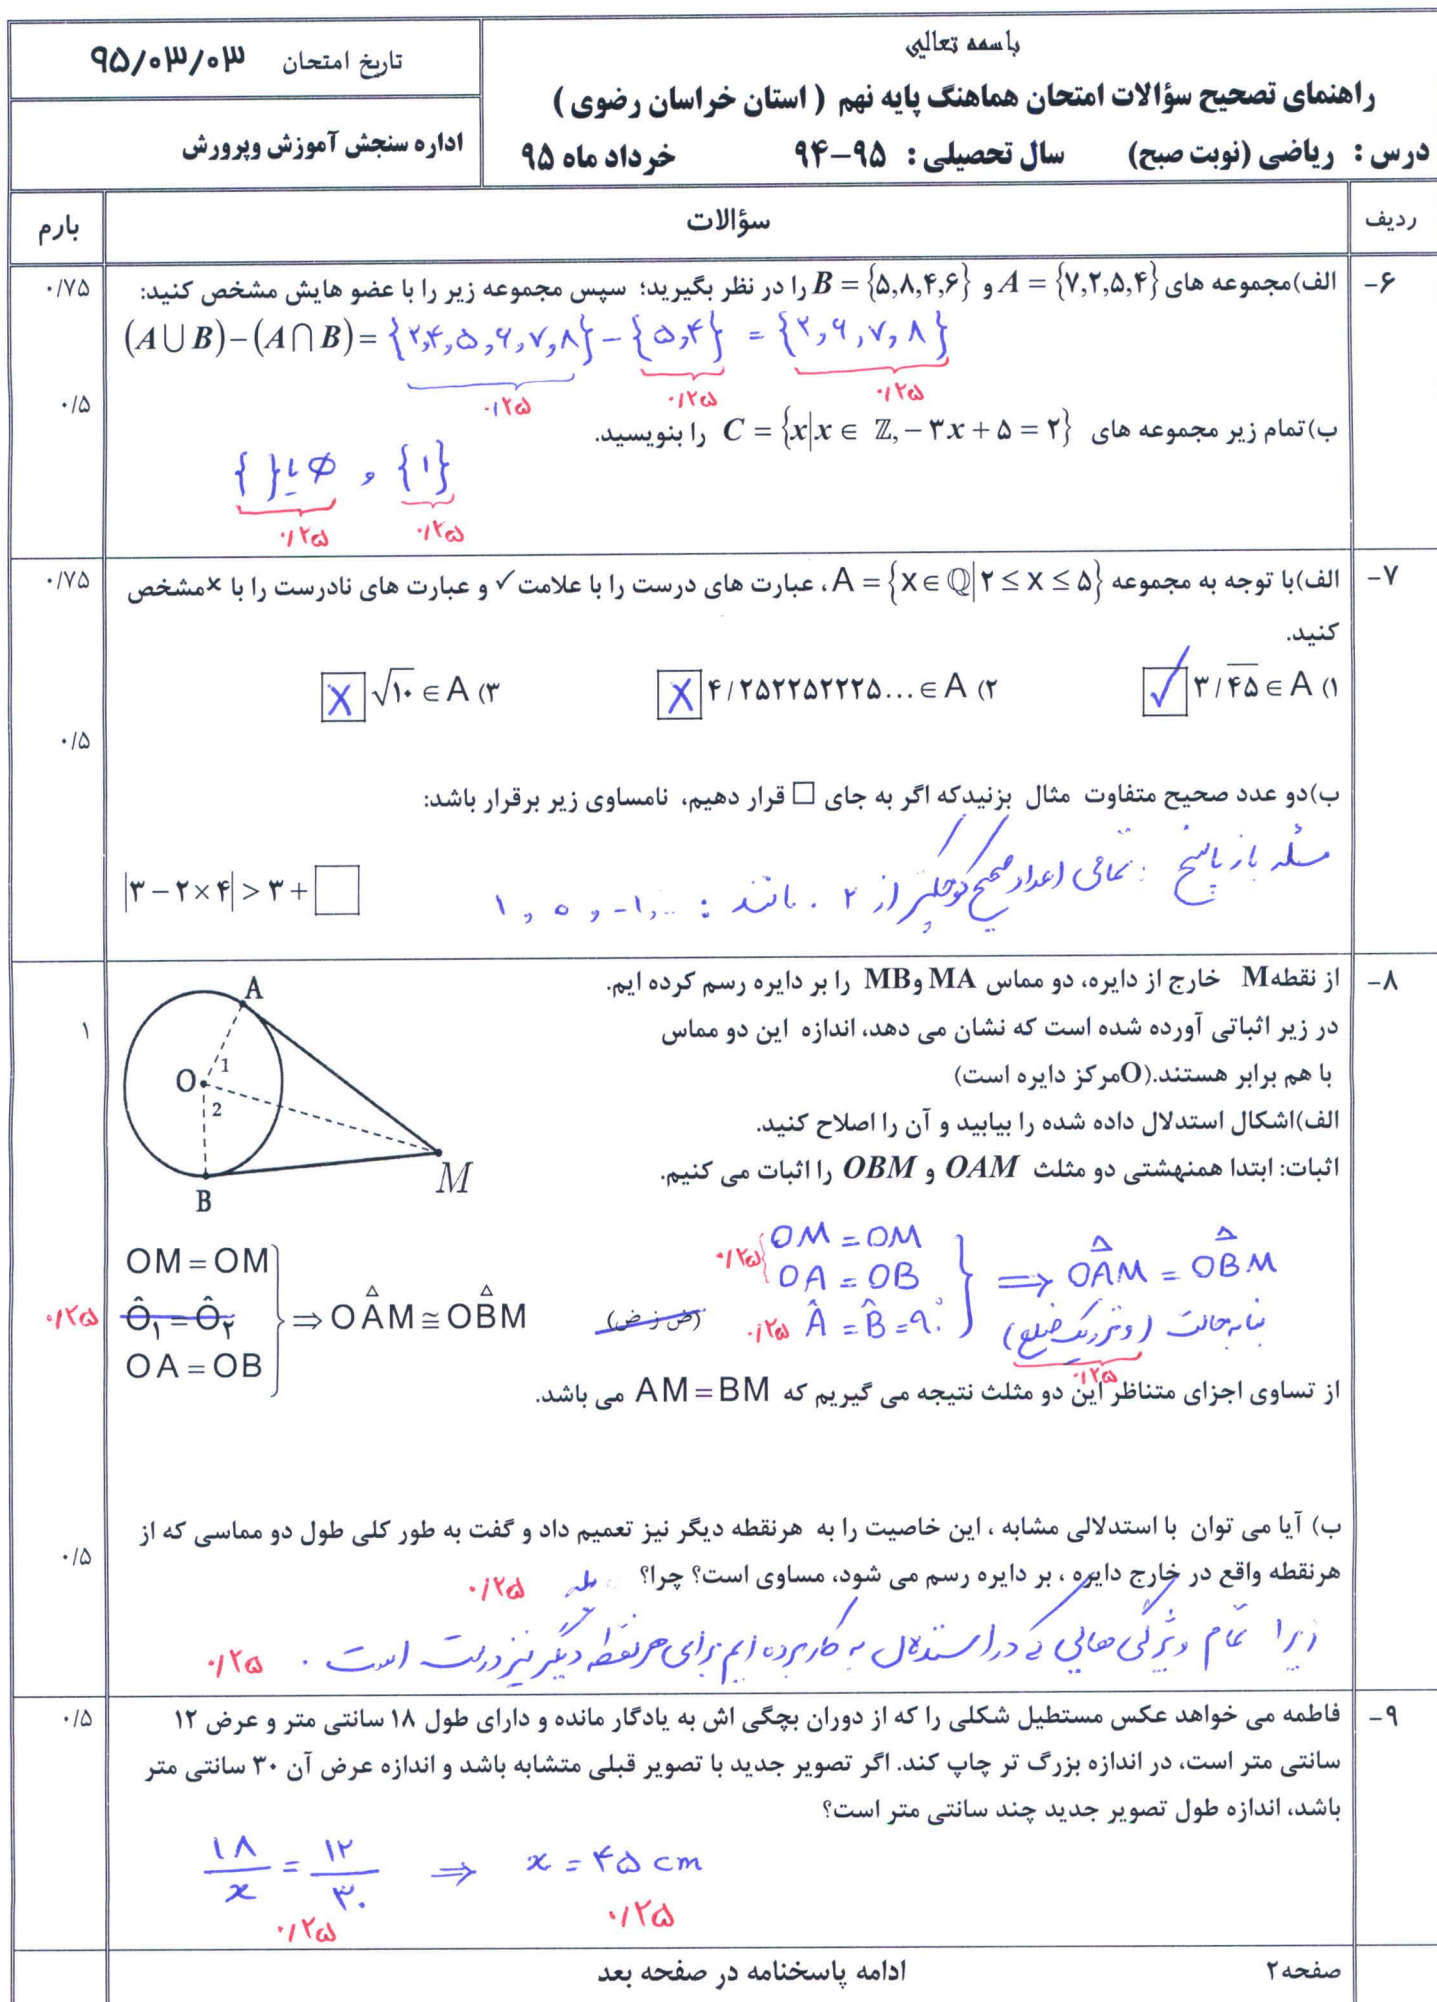 باسمه تعالي
راهنمای تصحیح سؤالات امتحان هماهنگ پایه نهم ( استان خراسان رضوی )
درس : ریاضی (نوبت صبح) سال تحصیلی : ۹۵-۹۴ خرداد ماه ۹۵
تاریخ امتحان ۹۵/۰۳/۰۳
اداره سنجش آموزش وپرورش
ردیف سؤالات بارم
۶- الف)مجموعه های A = {۷,۲,۵,۴} و B = {۵,۸,۴,۶} را در نظر بگیرید؛ سپس مجموعه زیر را با عضو هایش مشخص کنید: ۰/۷۵
(A∪B)−(A∩B) = {۲,۴,۵,۶,۷,۸} − {۵,۴} = {۲,۶,۷,۸}
۰/۲۵ ۰/۲۵ ۰/۲۵
ب)تمام زیر مجموعه های C = {x|x ∈ ℤ, −۳x + ۵ = ۲} را بنویسید. ۰/۵
{۱} و ∅ یا { }
۰/۲۵ ۰/۲۵
۷- الف)با توجه به مجموعه A = {x ∈ ℚ|۲ ≤ x ≤ ۵}، عبارت های درست را با علامت ✓ و عبارت های نادرست را با ×مشخص ۰/۷۵
کنید.
۱) ۳/\overline{۴۵} ∈ A ✓ ۲) ۴/۲۵۲۲۵۲۲۲۵... ∈ A X ۳) √۱۰ ∈ A X
۰/۵
ب)دو عدد صحیح متفاوت مثال بزنیدکه اگر به جای □ قرار دهیم، نامساوی زیر برقرار باشد:
مسئله باز پاسخ : تمامی اعداد صحیح کوچکتر از ۲ . مانند : ... و -۱ و ۰ و ۱
|۳ − ۲×۴| > ۳ + □
۸- از نقطهM خارج از دایره، دو مماس MA وMB را بر دایره رسم کرده ایم.
در زیر اثباتی آورده شده است که نشان می دهد، اندازه این دو مماس ۱
با هم برابر هستند.(Oمرکز دایره است)
الف)اشکال استدلال داده شده را بیابید و آن را اصلاح کنید.
اثبات: ابتدا همنهشتی دو مثلث OAM و OBM را اثبات می کنیم.
A
O 1
2
B
M
OM = OM
Ô۱ = Ô۲
OA = OB
⇒ OÂM ≅ OB̂M (ض ز ض)
۰/۲۵
OM = OM
OA = OB ۰/۲۵
Â = B̂ = ۹۰° ۰/۲۵
⇒ OÂM = OB̂M
بنا به حالت (وتر و یک ضلع)
۰/۲۵
از تساوی اجزای متناظر این دو مثلث نتیجه می گیریم که AM = BM می باشد.
ب) آیا می توان با استدلالی مشابه ، این خاصیت را به هرنقطه دیگر نیز تعمیم داد و گفت به طور کلی طول دو مماسی که از
هرنقطه واقع در خارج دایره ، بر دایره رسم می شود، مساوی است؟ چرا؟ بله ۰/۲۵ ۰/۵
زیرا تمام ویژگی هایی که در استدلال به کار برده ایم برای هر نقطه دیگر نیز درست است . ۰/۲۵
۹- فاطمه می خواهد عکس مستطیل شکلی را که از دوران بچگی اش به یادگار مانده و دارای طول ۱۸ سانتی متر و عرض ۱۲ ۰/۵
سانتی متر است، در اندازه بزرگ تر چاپ کند. اگر تصویر جدید با تصویر قبلی متشابه باشد و اندازه عرض آن ۳۰ سانتی متر
باشد، اندازه طول تصویر جدید چند سانتی متر است؟
۱۸/x = ۱۲/۳۰ ⇒ x = ۴۵ cm
۰/۲۵ ۰/۲۵
صفحه۲ ادامه پاسخنامه در صفحه بعد